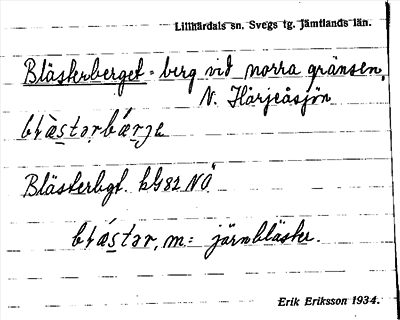 Lillhärdals sn. Svegs tg. Jämtlands län.
Blästerberget = berg vid norra gränsen,
N. Härjeåsjön
blæ̀stərbǽrje
Blästerbgt. bl 82 NÖ
blǽstər, m = järnbläster.
Erik Eriksson 1934.